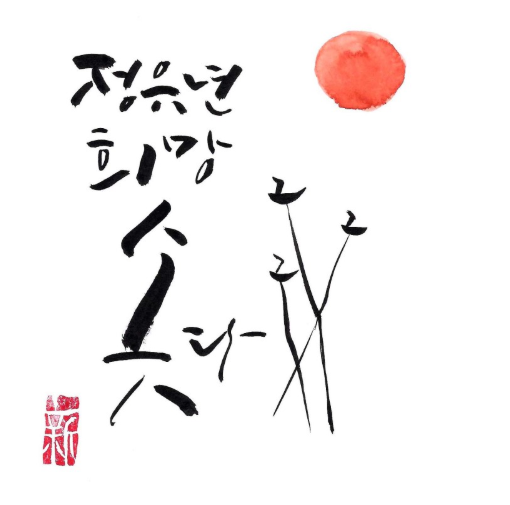 정유년
희망
솟다
新